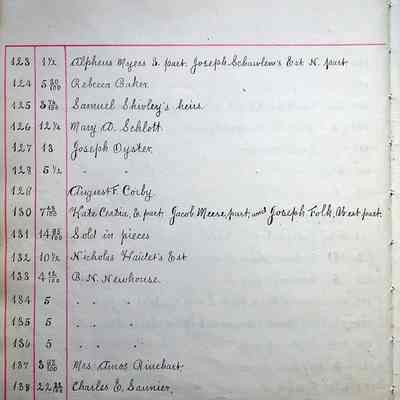 123 1 1/2 Alpheus Myers S. part. Joseph Schawlem's Est N. part
124 5 80/100 Rebecca Baker
125 3 75/100 Samuel Shivley's heirs
126 12 1/2 Mary A. Schlott
127 13 Joseph Oyster
128 5 1/2 " "
128 August F. Corby
130 7 Kate Cratia, E. part. Jacob Meese, part, and Joseph Folk, West part.
131 14 Sold in pieces
132 10 1/2 Nicholas Haidet's Est
133 4 B. N. Newhouse
134 5 " "
135 5 " "
136 5 " "
137 3 Mrs. Amos Rinehart
138 22 Charles E. Saunier